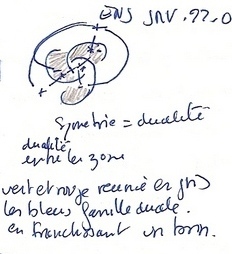 ENS JAV. 97.0
Symetrie = dualité
dualité
entre les zone
vert et rouge reunie en gris
les bleus famille duale.
en franchissant un torn.